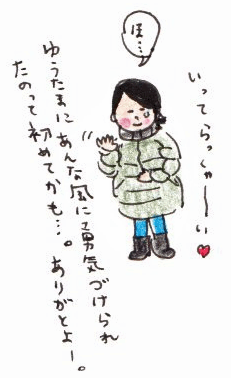 いってらっしゃーーい♥
ほ…
ゆうたまにあんな風に勇気づけられ
たのって初めてかも…。ありがとよー。